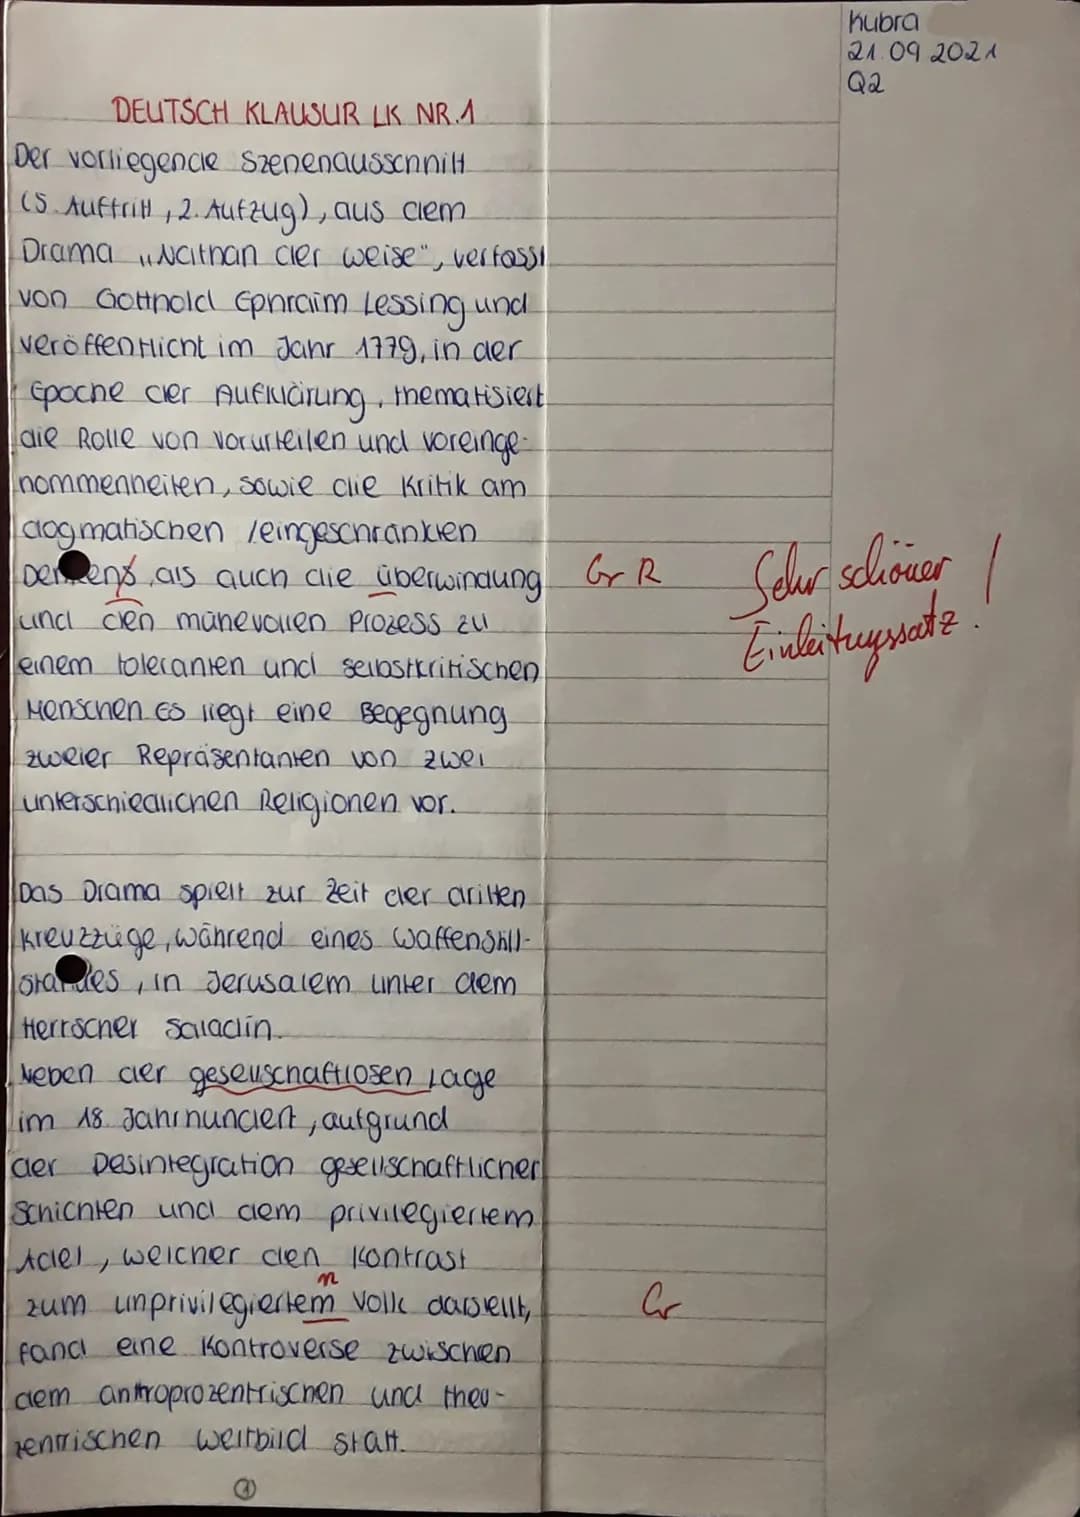 Kubra
21.09 2021
Q2
DEUTSCH KLAUSUR LK NR.1
Der vorliegende Szenenausschnitt
(5. Auftritt, 2. Aufzug), aus dem
Drama „Nathan der weise", verfasst
von Gotthold Ephraim Lessing und
veröffentlicht im Jahr 1779, in der
Epoche der Aufklärung, thematisiert
die Rolle von Vorurteilen und voreinge-
nommenheiten, sowie die Kritik am
dogmatischen /eingeschränkten
Denkens, als auch die überwindung
Gr R
Sehr schöner
Einleitungssatz!
und den mühevollen Prozess zu
einem toleranten und selbstkritischen
Menschen. Es liegt eine Begegnung
zweier Repräsentanten von zwei
unterschiedlichen Religionen vor.
Das Drama spielt zur Zeit der dritten
Kreuzzüge, während eines Waffenstill-
standes, in Jerusalem unter dem
Herrscher Saladin.
Neben der gesellschaftlosen Lage
im 18. Jahrhundert, aufgrund
der Desintegration gesellschaftlicher
Schichten und dem privilegiertem
Adel, welcher den Kontrast
n
zum unprivilegiertem Volk darstellt,
Gr
fand eine Kontroverse zwischen
dem anthroprozentrischen und theo-
zentrischen Weltbild statt.
1